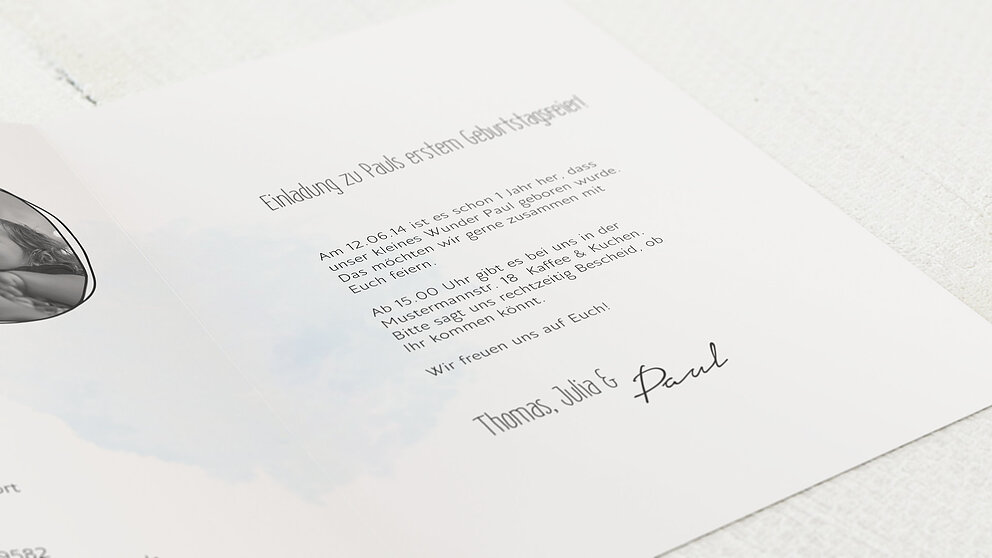 Einladung zu Pauls erstem Geburtstagsfeier!
Am 12.06.14 ist es schon 1 Jahr her, dass
unser kleines Wunder Paul geboren wurde.
Das möchten wir gerne zusammen mit
Euch feiern.
Ab 15.00 Uhr gibt es bei uns in der
Mustermannstr. 18 Kaffee & Kuchen.
Bitte sagt uns rechtzeitig Bescheid, ob
Ihr kommen könnt.
Wir freuen uns auf Euch!
Thomas, Julia & Paul
ort
9582